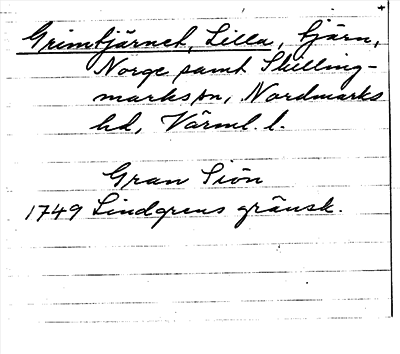 Grimtjärnet, Lilla, tjärn,
Norge samt Skilling-
marks sn, Nordmarks
hd, Värml. l.
Gran Siön
1749 Lindgrens gränsk.